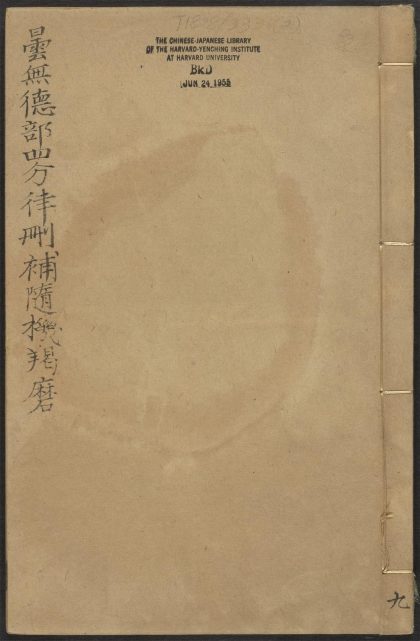 THE CHINESE-JAPANESE LIBRARY
OF THE HARVARD-YENCHING INSTITUTE
AT HARVARD UNIVERSITY
BKD
JUN 24 1955
曇無德部四分律刪補隨機羯磨
九